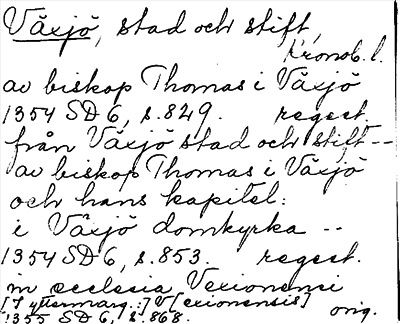 Växjö, stad och stift,
Kronob. l.
av biskop Thomas i Växjö
1354 SD 6, s. 849. regest.
från Växjö stad och stift --
av biskop Thomas i Växjö
och hans kapitel:
i Växjö domkyrka --
1354 SD 6, s. 853. regest.
in ecclesia Vexionensi
[I yttermarg.:] V[exionensis]
1355 SD 6, s. 868. orig.